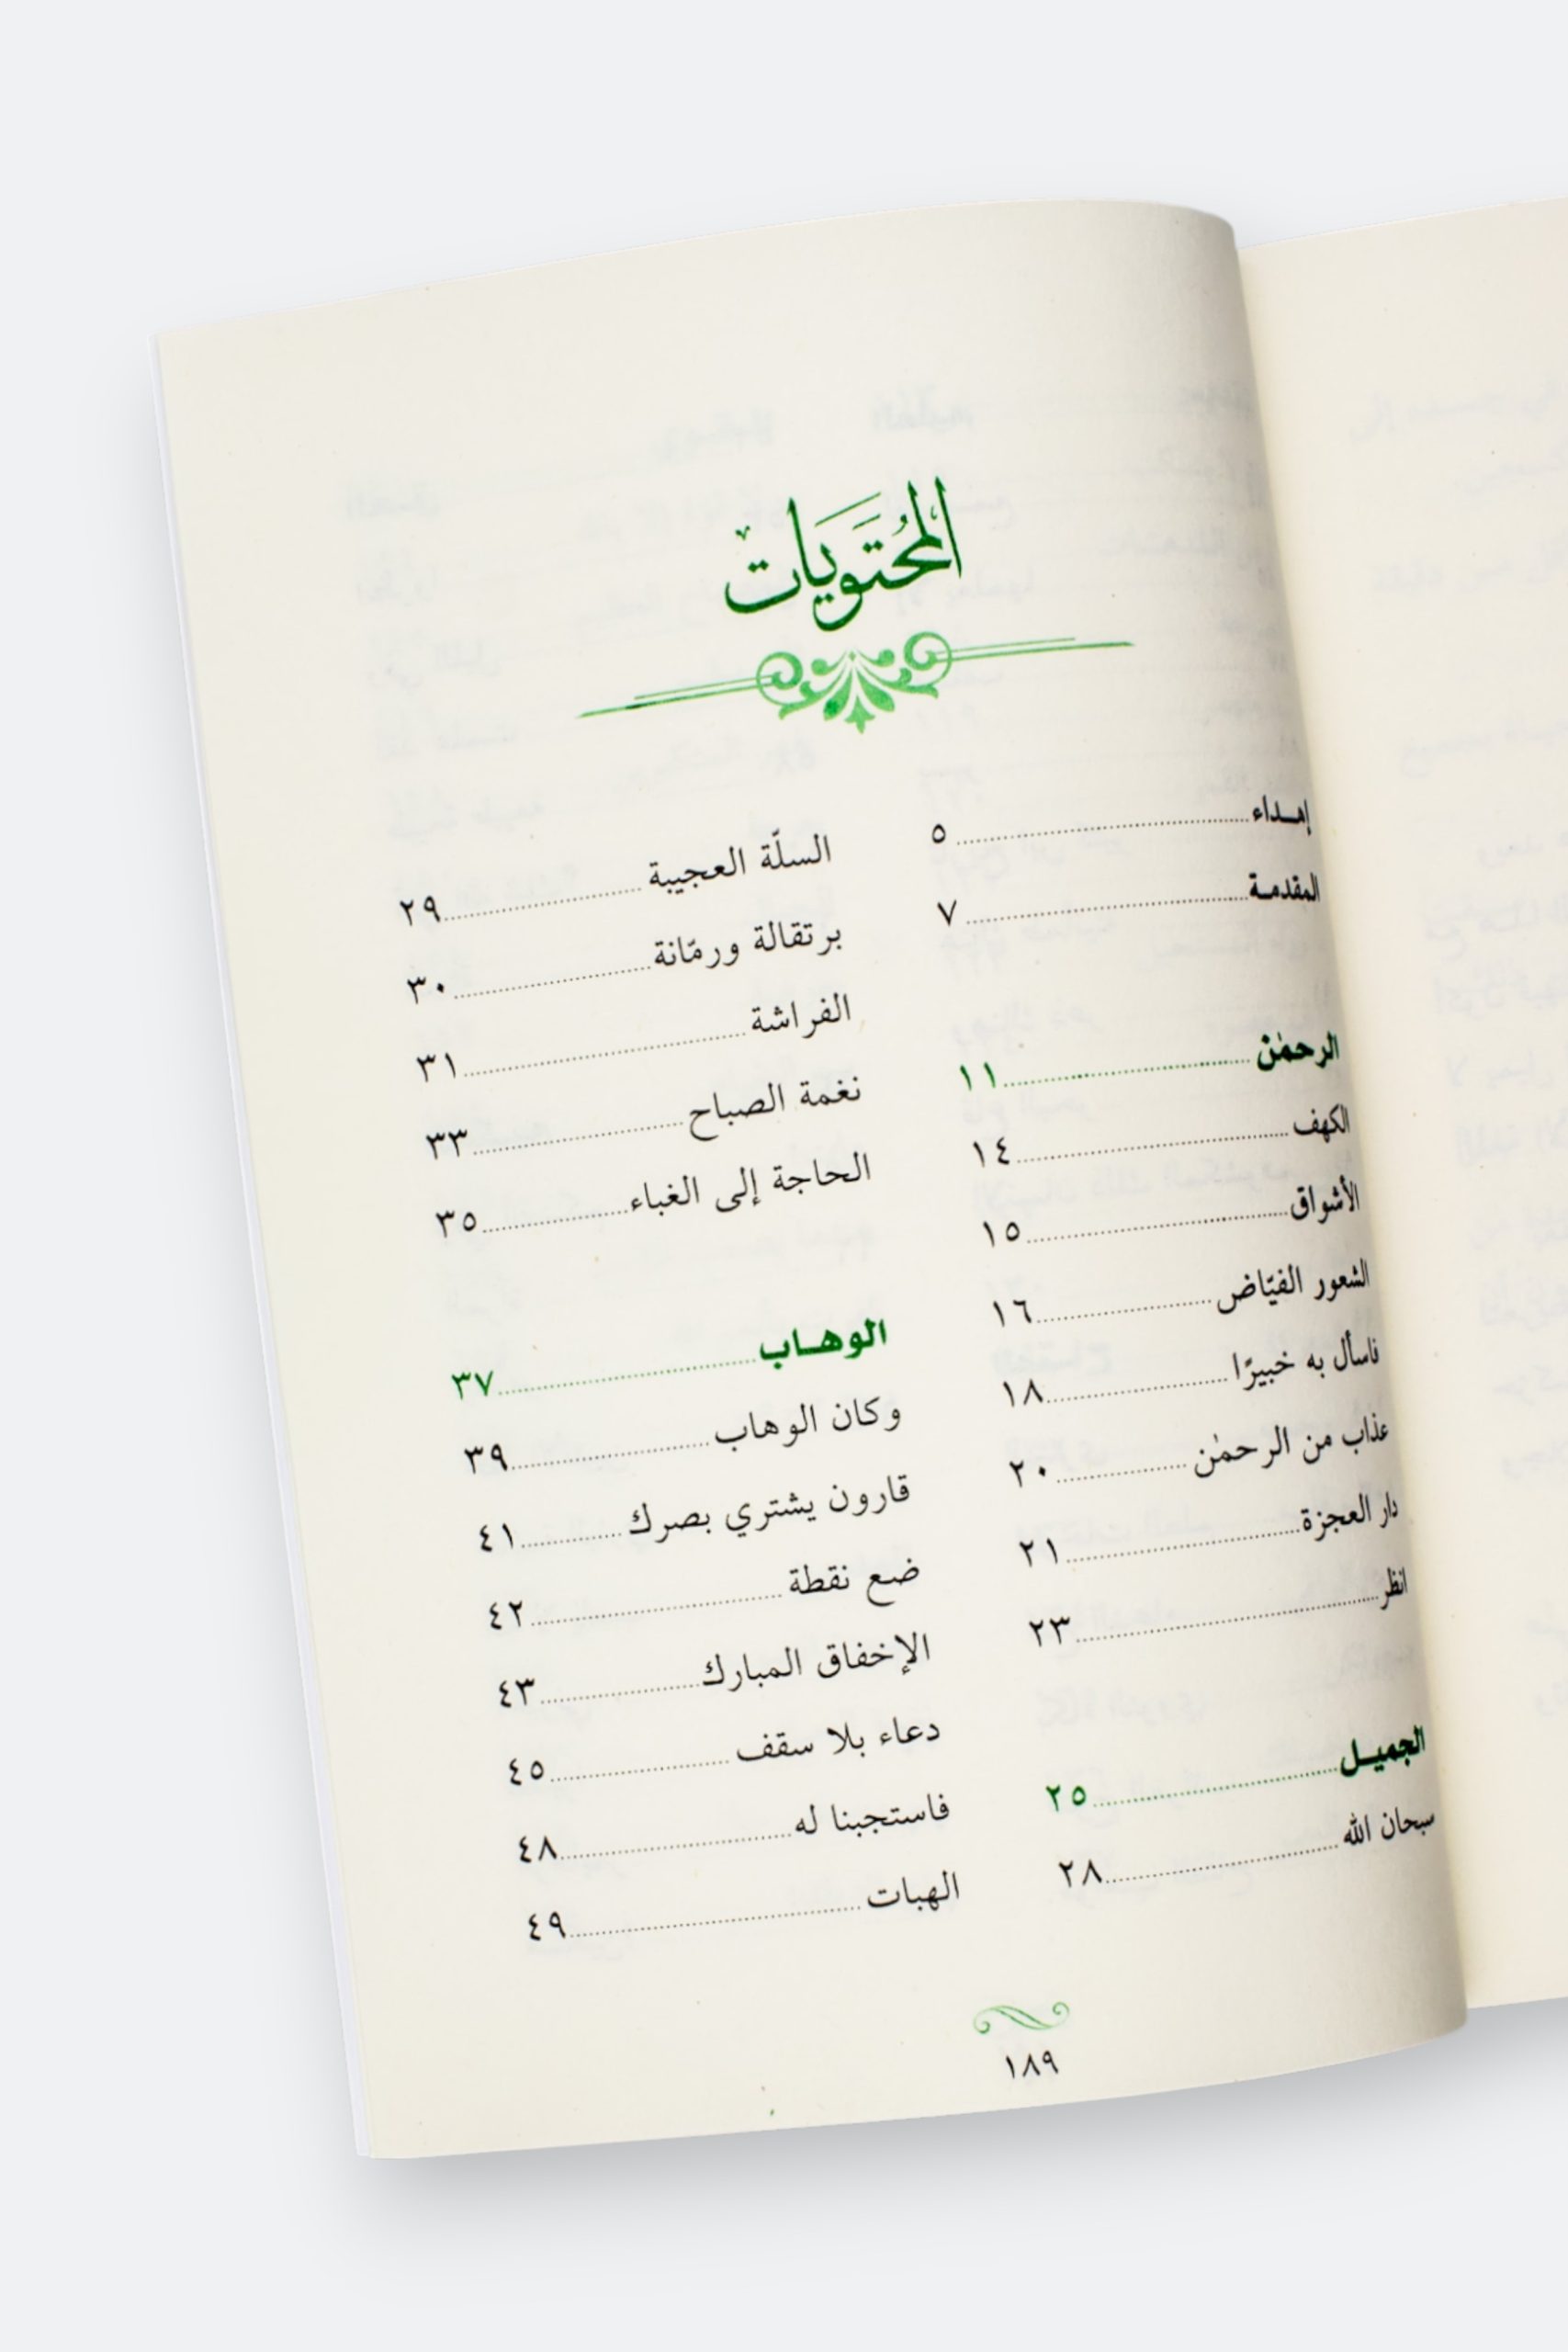 المُحتَويَات
إهـداء ٥
المقدمـة ٧
الرحمٰن ١١
الكهف ١٤
الأشواق ١٥
الشعور الفيّاض ١٦
فاسأل به خبيرًا ١٨
عذاب من الرحمٰن ٢٠
دار العجزة ٢١
انظر ٢٣
الجميـل ٢٥
سبحان الله ٢٨
السلّة العجيبة ٢٩
برتقالة ورمّانة ٣٠
الفراشة ٣١
نغمة الصباح ٣٣
الحاجة إلى الغباء ٣٥
الوهـاب ٣٧
وكان الوهاب ٣٩
قارون يشتري بصرك ٤١
ضع نقطة ٤٢
الإخفاق المبارك ٤٣
دعاء بلا سقف ٤٥
فاستجبنا له ٤٨
الهبات ٤٩
١٨٩